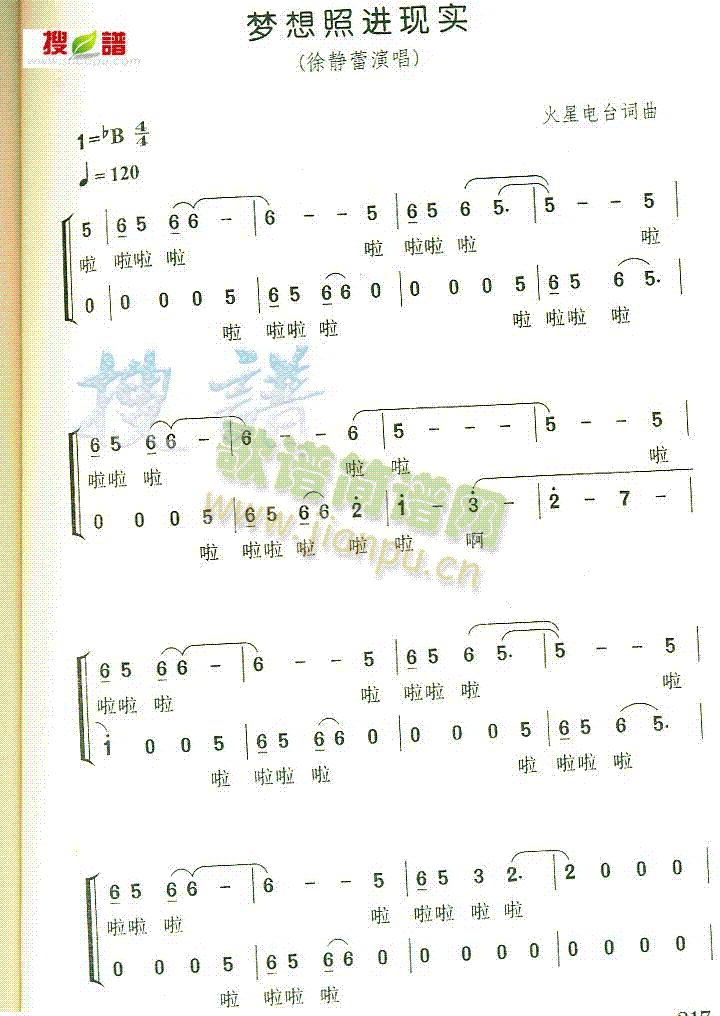 梦想照进现实
搜 譜
www.sooopu.com
(徐静蕾演唱)
火星电台词曲
1=♭B 4/4
♩=120
5 | 6 5 6 6 - | 6 - - 5 | 6 5 6 5. | 5 - - 5 |
啦 啦啦 啦 啦 啦啦 啦 啦
0 | 0 0 0 5 | 6 5 6 6 0 | 0 0 0 5 | 6 5 6 5. |
啦 啦啦 啦 啦 啦啦 啦
搜 譜
6 5 6 6 - | 6 - - 6 | 5 - - - | 5 - - 5 |
啦啦 啦 啦 啦 啦
歌谱简谱网
www.jianpu.cn
0 0 0 5 | 6 5 6 6 2 | 1 - 3 - | 2 - 7 - |
啦 啦啦 啦 啦 啦 啊
6 5 6 6 - | 6 - - 5 | 6 5 6 5. | 5 - - 5 |
啦啦 啦 啦 啦啦 啦 啦
1 0 0 5 | 6 5 6 6 0 | 0 0 0 5 | 6 5 6 5. |
啦 啦啦 啦 啦 啦啦 啦
6 5 6 6 - | 6 - - 5 | 6 5 3 2. | 2 0 0 0 |
啦啦 啦 啦 啦啦 啦 啦
0 0 0 5 | 6 5 6 6 0 | 0 0 0 0 | 0 0 0 0 |
啦 啦啦 啦